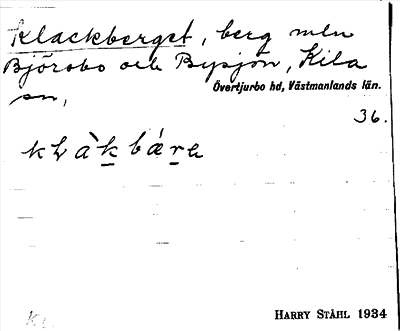 Klackberget, berg mln
Björobo och Bysjön, Kila
sn,
Övertjurbo hd, Västmanlands län.
36.
HARRY STÅHL 1934